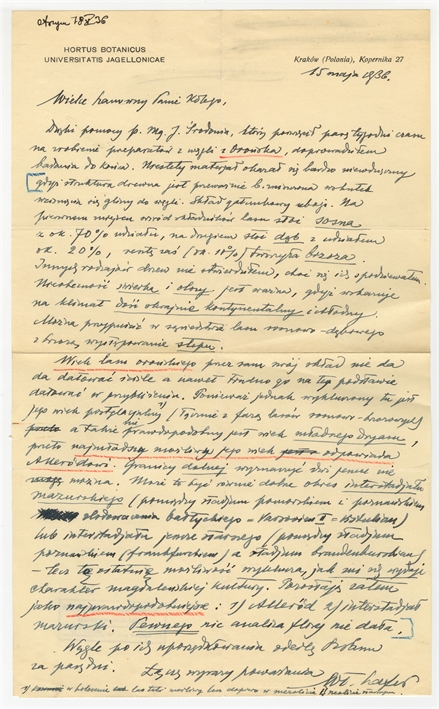 Otrzym 18 V 36
HORTUS BOTANICUS
UNIVERSITATIS JAGELLONICAE
Kraków (Polonia), Kopernika 27
15 maja 1936.
Wielce Szanowny Panie Kolego,
Dzięki pomocy p. Mg. J. Środonia, który poświęcił parę tygodni czasu
na zrobienie preparatów z węgli z Orońska, doprowadziłem
badania do końca. Niestety materjał okazał się bardzo niewdzięczny
gdyż struktura drewna jest przeważnie b. zmieniona wskutek
się gliny do węgli. Skład gatunkowy ubogi. Na
pierwszem miejscu wśród składników lasu stoi sosna
z ok. 70% udziału, na drugiem stoi dąb z udziałem
ok. 20%, resztę zaś (ok. 10%) tworzyła brzoza.
Innych rodzajów drzew nie stwierdziłem, choć się ich spodziewałem.
Nieobecność świerka i olszy jest ważna, gdyż wskazuje
na klimat dość skrajnie kontynentalny i chłodny.
Można przypuścić w sąsiedztwie lasu sosnowo-dębowego
z brzozą występowanie stepu.
Wiek lasu orońskiego przez sam mój skład nie da
da datować ściśle a nawet trudno go na tej podstawie
datować w przybliżeniu. Ponieważ jednak wykluczony tu jest
jego wiek postglacjalny (łącznie z fazą lasów sosnowo-brzozowych)
a także nieprawdopodobny jest wiek młodszego dryasu,
przeto najmłodszy możliwy jego wiek odpowiada
Alleröd'owi. Granicy dolnej wyznaczyć dziś jeszcze nie
można. Może to być równie dobrze okres interstadjału
mazurskiego (pomiędzy stadjum pomorskiem i poznańskiem
zlodowacenia bałtyckiego = Varsovien II = Würmien)
lub interstadjału jeszcze starszego (pomiędzy stadjum
poznańskiem (frankfurckiem) a stadjum brandenburskiem)
- lecz tę ostatnią możliwość wyklucza, jak mi się wydaje
charakter magdaleńskiej kultury. Pozostają zatem
jako najprawdopodobniejsze: 1) Alleröd 2) interstadjał
mazurski. Pewnego nic analiza flory nie dała.
Węgle po ich uporządkowaniu odeślę Panu
za parę dni.
Łączę wyrazy poważania
Wł. Szafer